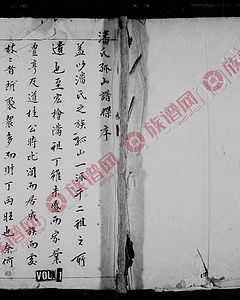 潘氏孤山譜牒序
蓋以潘氏之族孤山一派千二祖之所
遺也至宏檜潘祖丁雖未盛而家業
豐亨及道桂公將比閭而居成族而處
林者所聚衆多而財丁两旺也奈何
VOL. 1
族谱网
族谱网
族谱网